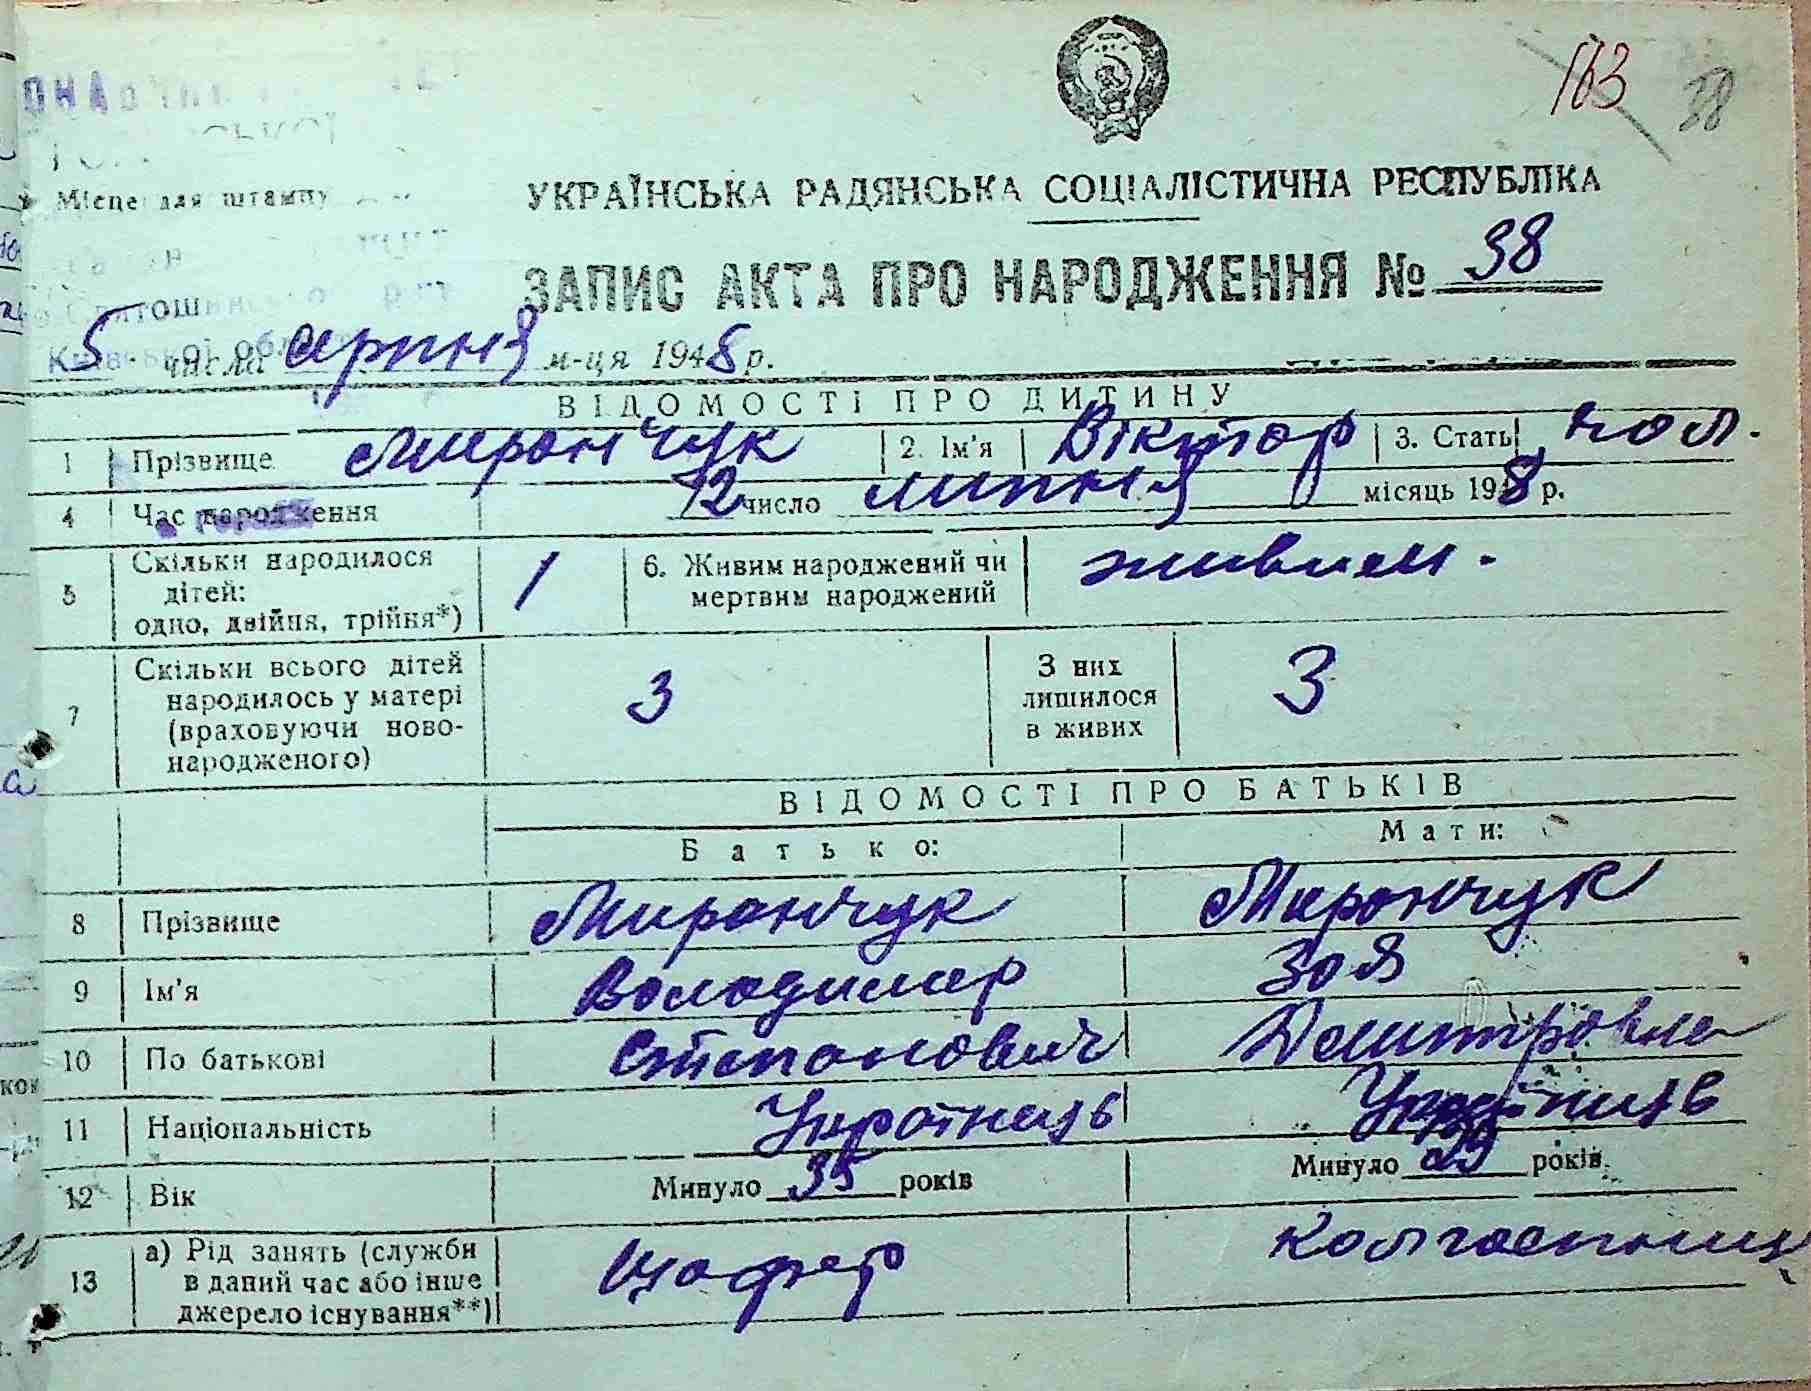 163 38
Місце для штампу
УКРАЇНСЬКА РАДЯНСЬКА СОЦІАЛІСТИЧНА РЕСПУБЛІКА
ЗАПИС АКТА ПРО НАРОДЖЕННЯ № 38
Київської
5 числа серпня м-ця 1948 р.
ВІДОМОСТІ ПРО ДИТИНУ
1 Прізвище Мирончук 2. Ім'я Віктор 3. Стать чол.
4 Час народження 12 число липня місяць 1948 р.
5 Скільки народилося
дітей:
одно, двійня, трійня*) 1 6. Живим народжений чи
мертвим народжений живим.
7 Скільки всього дітей
народилось у матері
(враховуючи ново-
народженого) 3 З них
лишилося
в живих 3
ВІДОМОСТІ ПРО БАТЬКІВ
Батько: Мати:
8 Прізвище Мирончук Мирончук
9 Ім'я Володимир Зоя
10 По батькові Степанович Дмитровна
11 Національність Українець Українець
12 Вік Минуло 35 років Минуло 29 років.
13 а) Рід занять (служби
в даний час або інше
джерело існування**) Шофер колгоспниця